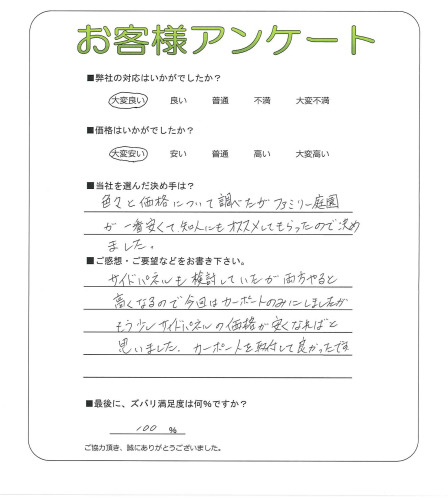 お客様アンケート
■弊社の対応はいかがでしたか?
大変良い 良い 普通 不満 大変不満
■価格はいかがでしたか?
大変安い 安い 普通 高い 大変高い
■当社を選んだ決め手は?
色々と価格について調べたがファミリー庭園
が一番安くて、知人にもオススメしてもらったので決め
ました。
■ご感想・ご要望などをお書き下さい。
サイドパネルも検討していたが両方やると
高くなるので今回はカーポートのみにしましたが
もう少しサイドパネルの価格が安くなればと
思いました。カーポートを取付して良かったです
■最後に、ズバリ満足度は何%ですか?
100 %
ご協力頂き、誠にありがとうございました。